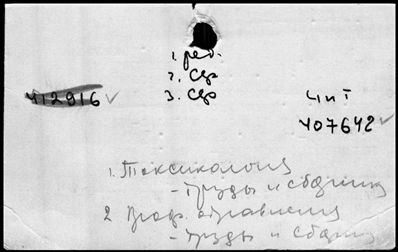 1. ред.
2. Сд
3. Сд
412916
Чит
407642
1. Токсикология
- труды и сборники
2. Проф. отравления
- труды и сборники